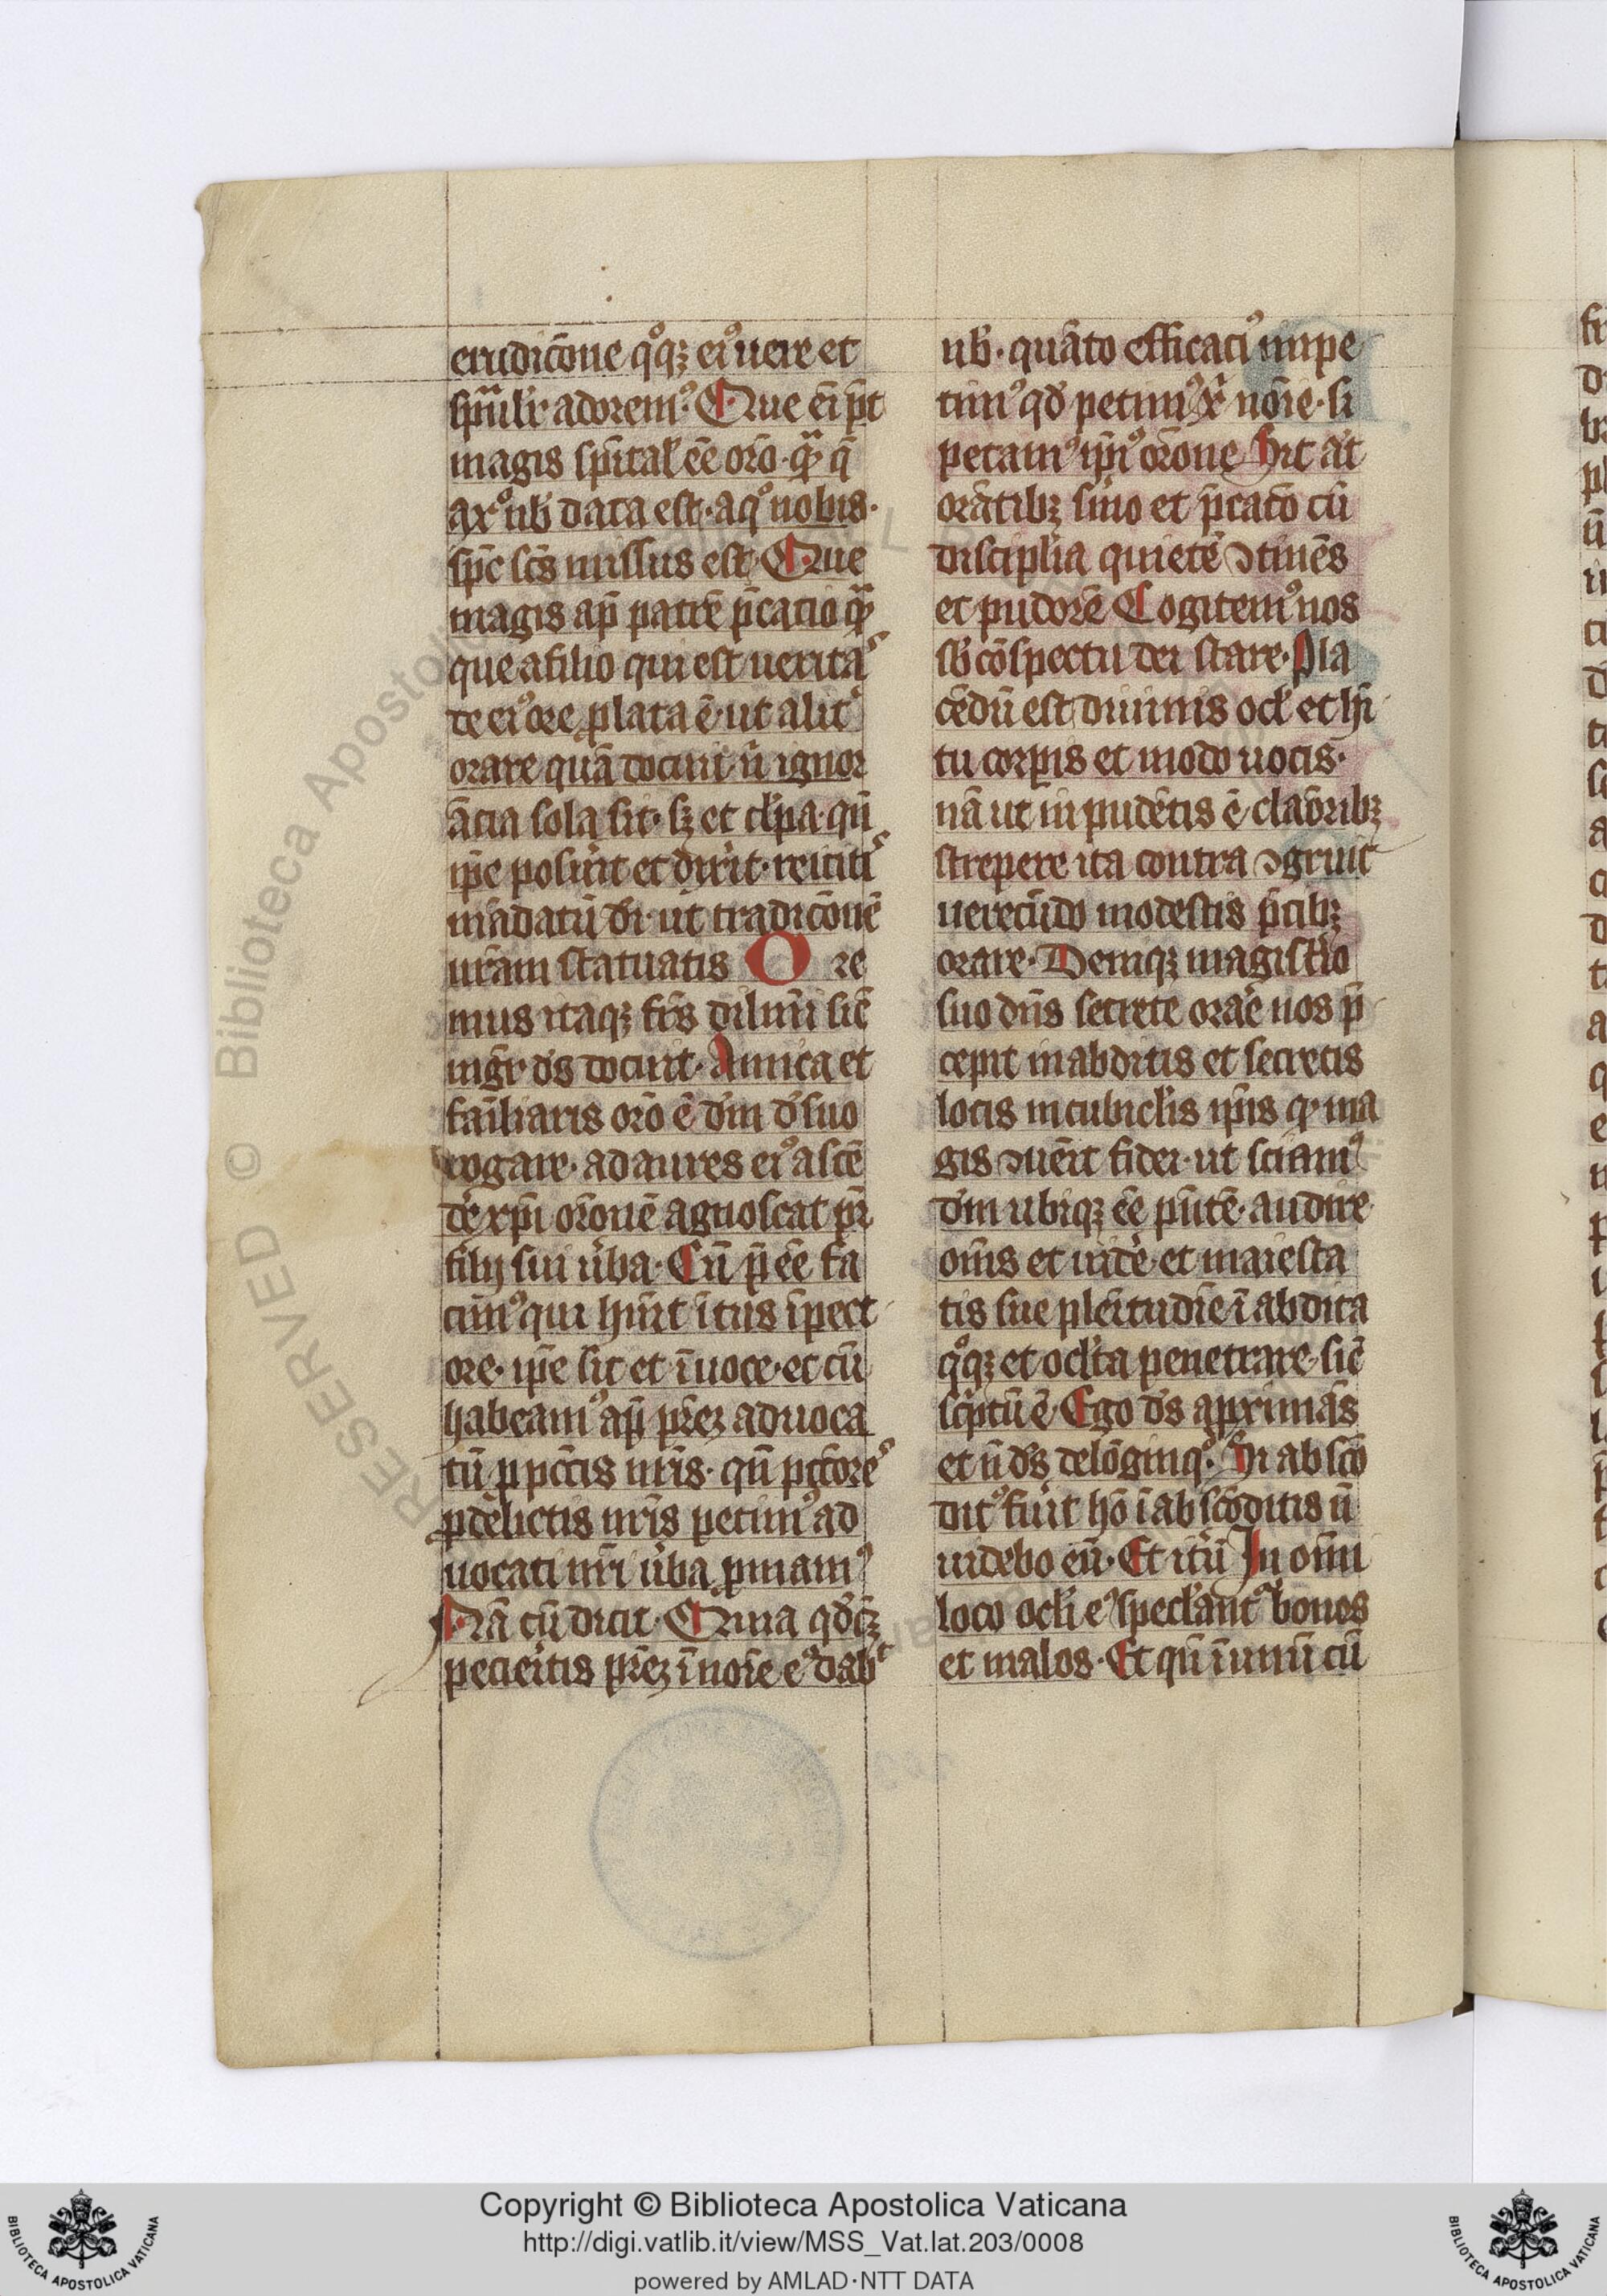 erudicōne qͦqꝫ eiꝰ uere et
sp̄ualr̄ adoremꝰ. Que ei̅ p̄t
magis sp̄ital' ēe orō. qͣꝫ q̄
a xͦ nb̄ data est. a qͦ nobis.
sp̄c sc̄s missus est. Que
magis ap̄ patrē p̄catio qͣꝫ
que a filio qui est uerita
te eiꝰ ore plata ē. ut alit̕
orare quā docuit n̄ ignor
ācia sola sit. sꝫ et cl̕pa. qn̄
ip̄e posuit̕ et dixit̕. reicitis
mādatū dī. ut tradicōnē
ur̄am statuatis O re
mus itaqꝫ fr̄s dilm̄i sic̄
mg̅r ds̄ docuit. Amica et
fāiliaris orō ē dm̄ dͦ suo
rogare. ad aures eiꝰ ascē
de̕ xp̄i orōnē agnoscat pr̄
filij sui u̕ba. Cū p̄ēe fa
cimꝰ qui hīt̕ ītus ī pect
ore. ip̄e sit et ī uoce. et cū
habeamꝰ ap̄ pr̄eꝫ aduoca
tū p pcc̄is nr̄is. qn̄ pcc̄oreˢ
p delictis nr̄is petimꝰ ad
uocati nr̄i u̕ba pmamꝰ
Nā cū dicit. Quia qd̄cūqꝫ
pecie̕itis pr̄eꝫ ī noīe eͦ dabᵗ
nb̄. quāto efficaciꝰ impe
timꝰ qd̄ petimꝰ xͥ noīe. si
petamꝰ ip̄iꝰ orōne Sit āt
orātibꝫ s̕mo et p̄catō cū
disciplīa quietē ↄtinēs
et pudorē Cogitemꝰ nos
sb̄ cōspectu dei stare. Pla
cēdū est diuinis ocl̕ et hī
tu corꝑis et modo uocis.
nā ut inpudētis ē clāoribꝫ
strepere ita contra ↄgruit
uerecūdo modestis p̄cibꝫ
orare. Deniqꝫ magist̕io
suo dn̄s secrete orāe nos p̄
cepit in abditis et secretis
locis in cubicl̕is ip̄is qꝫ ma
gis ↄuēit fidei. ut sciamꝰ
dm̄ ubiqꝫ ēe pn̄tē. audire
oīns et uidē̕. et maiesta
tis sue plēitudīe ī abdita
qͦqꝫ et ocl̕ta penetrare. sic̄
sc̕ptū ē. Ego ds̄ apximās
et n̄ ds̄ de lōginqͦ. Si abscō
ditꝰ fuit̕ hō ī abscōditis n̄
uidebo eū. Et itū̕ In omi
loco ocl̕i eꝰ specl̕antͬ bonos
et malos. Et qn̄ ī unū cū
Copyright © Biblioteca Apostolica Vaticana
http://digi.vatlib.it/view/MSS_Vat.lat.203/0008
powered by AMLAD·NTT DATA
BIBLIOTECA APOSTOLICA VATICANA
BIBLIOTECA APOSTOLICA VATICANA